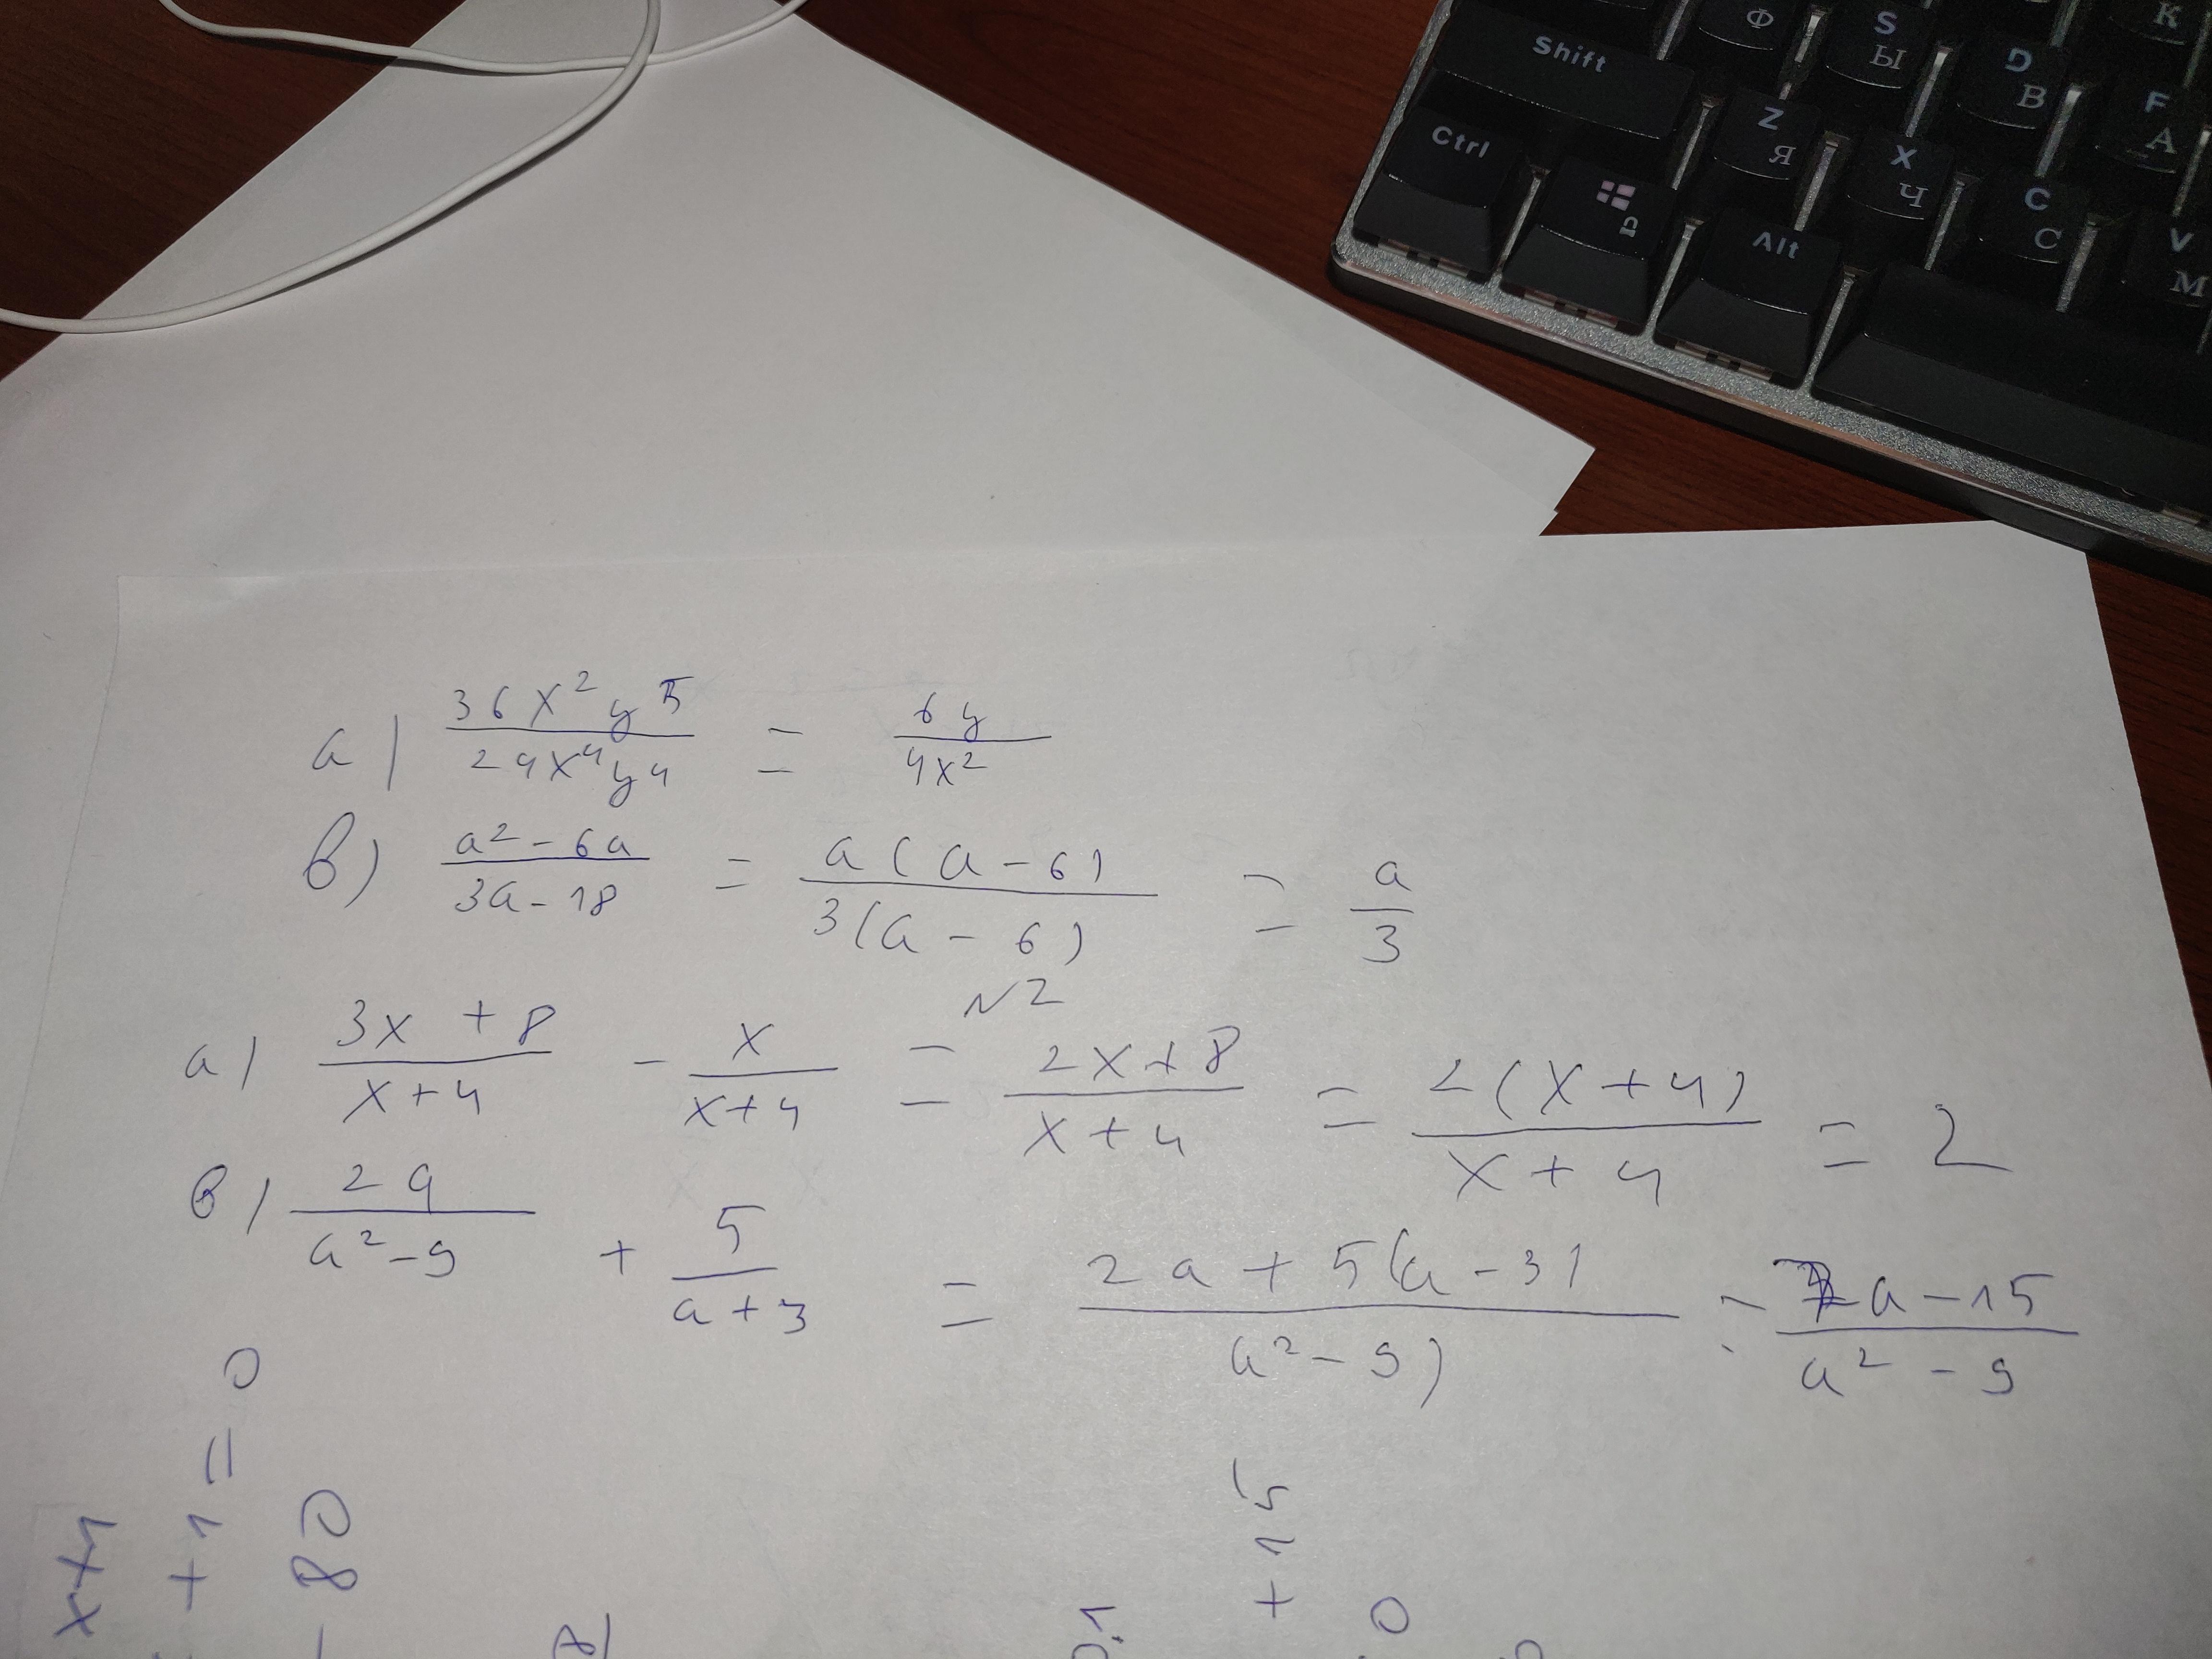 Ф
S Ы
D В
F А
К
Shift
Ctrl
Z Я
X Ч
C С
V М
Alt
a) 36x²y⁵ / 24x⁴y⁴ = 6y / 4x²
б) a² - 6a / 3a - 18 = a(a - 6) / 3(a - 6) = a / 3
N2
a) 3x + 8 / x + 4 - x / x + 4 = 2x + 8 / x + 4 = 2(x + 4) / x + 4 = 2
б) 2a / a² - 9 + 5 / a + 3 = 2a + 5(a - 3) / a² - 9) = 7a - 15 / a² - 9
x+4
+1=0
- 80
+15
0